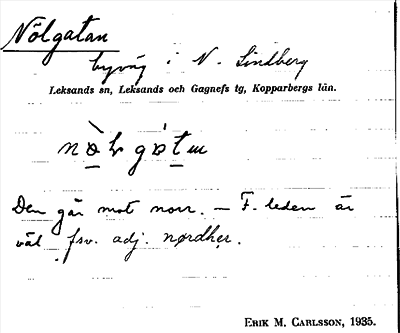 Nölgatan
byväg i N. Lindberg
Leksands sn, Leksands och Gagnefs tg, Kopparbergs län.
Den går mot norr. – F. leden är
väl fsv. adj. nørdher.
ERIK M. CARLSSON, 1935.